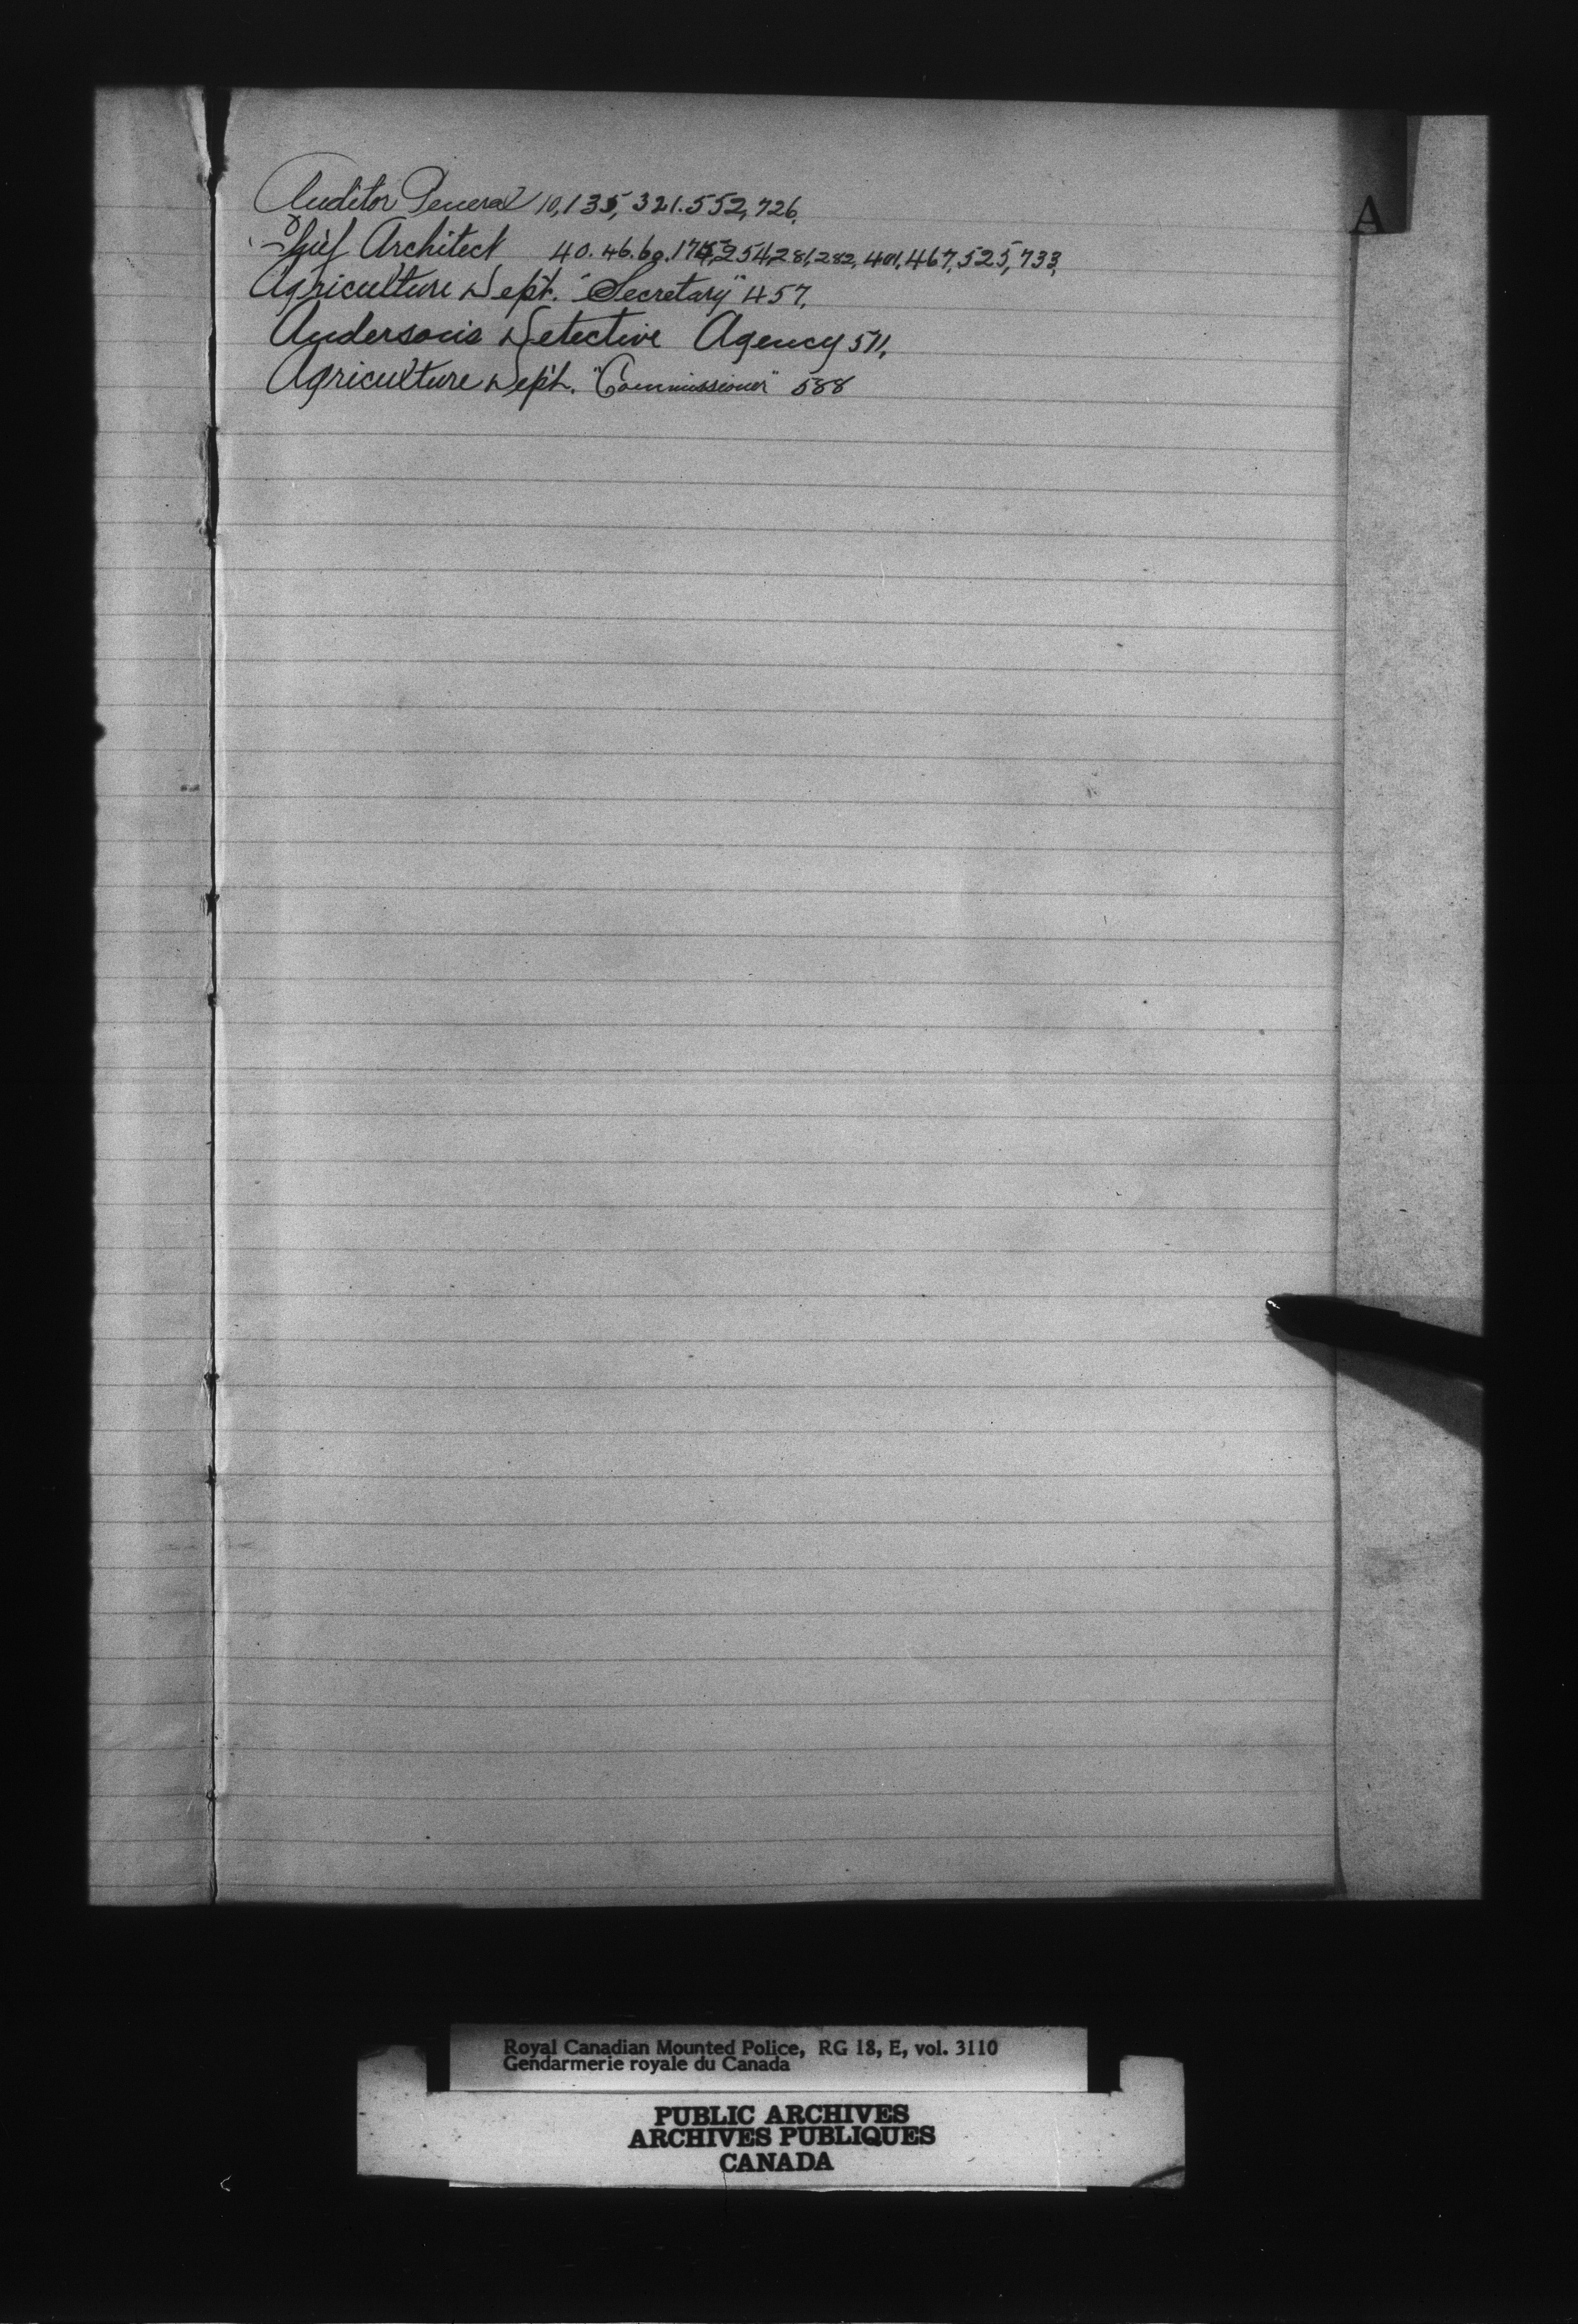 Auditor General 10, 135, 321. 552, 726,
Chief Architect 40. 46. 60. 175, 254, 281, 282, 401, 467, 525, 733,
Agriculture Dept. "Secretary" 457,
Anderson's Detective Agency 571,
Agriculture Dept. "Commissioner" 588
A
Royal Canadian Mounted Police, RG 18, E, vol. 3110
Gendarmerie royale du Canada
PUBLIC ARCHIVES
ARCHIVES PUBLIQUES
CANADA